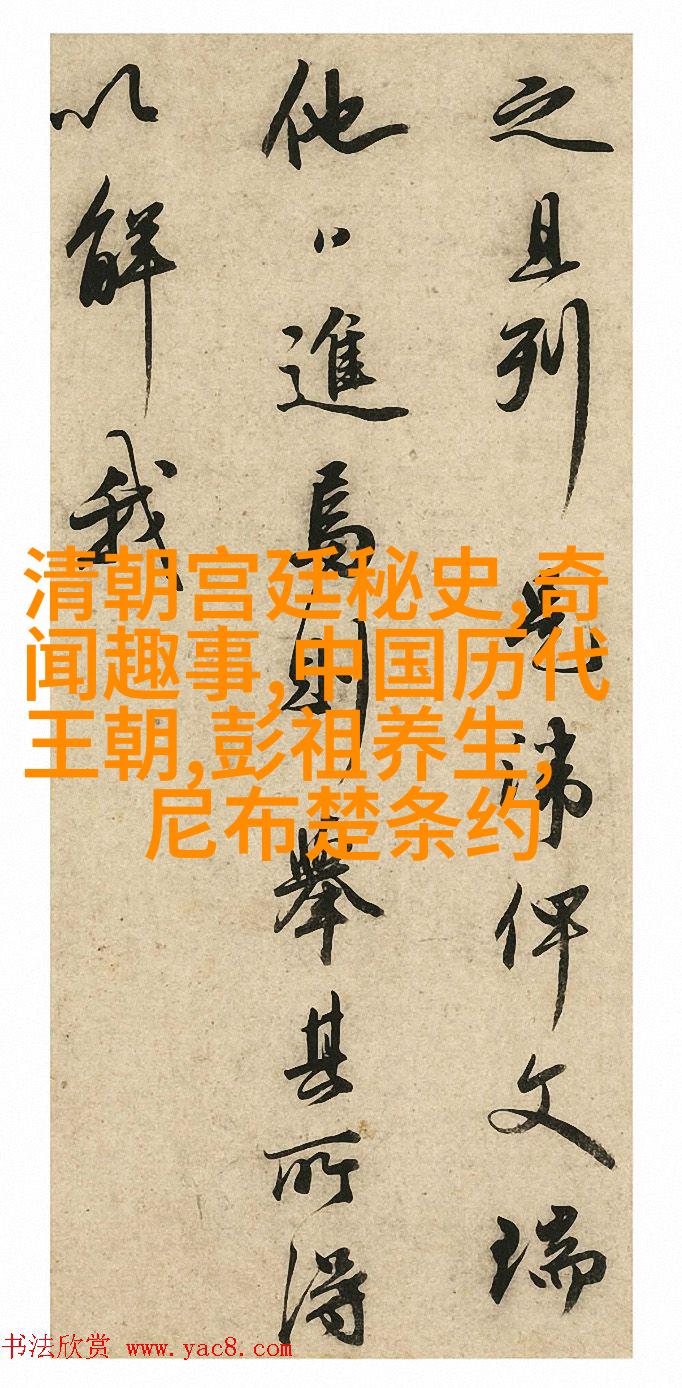 之且列是諱俾文瑞
他〻進為則舉其所得
以解我
清朝宫廷秘史,奇
闻趣事,中国历代
王朝,彭祖养生,
尼布楚条约
书法欣赏 www.yac8.com